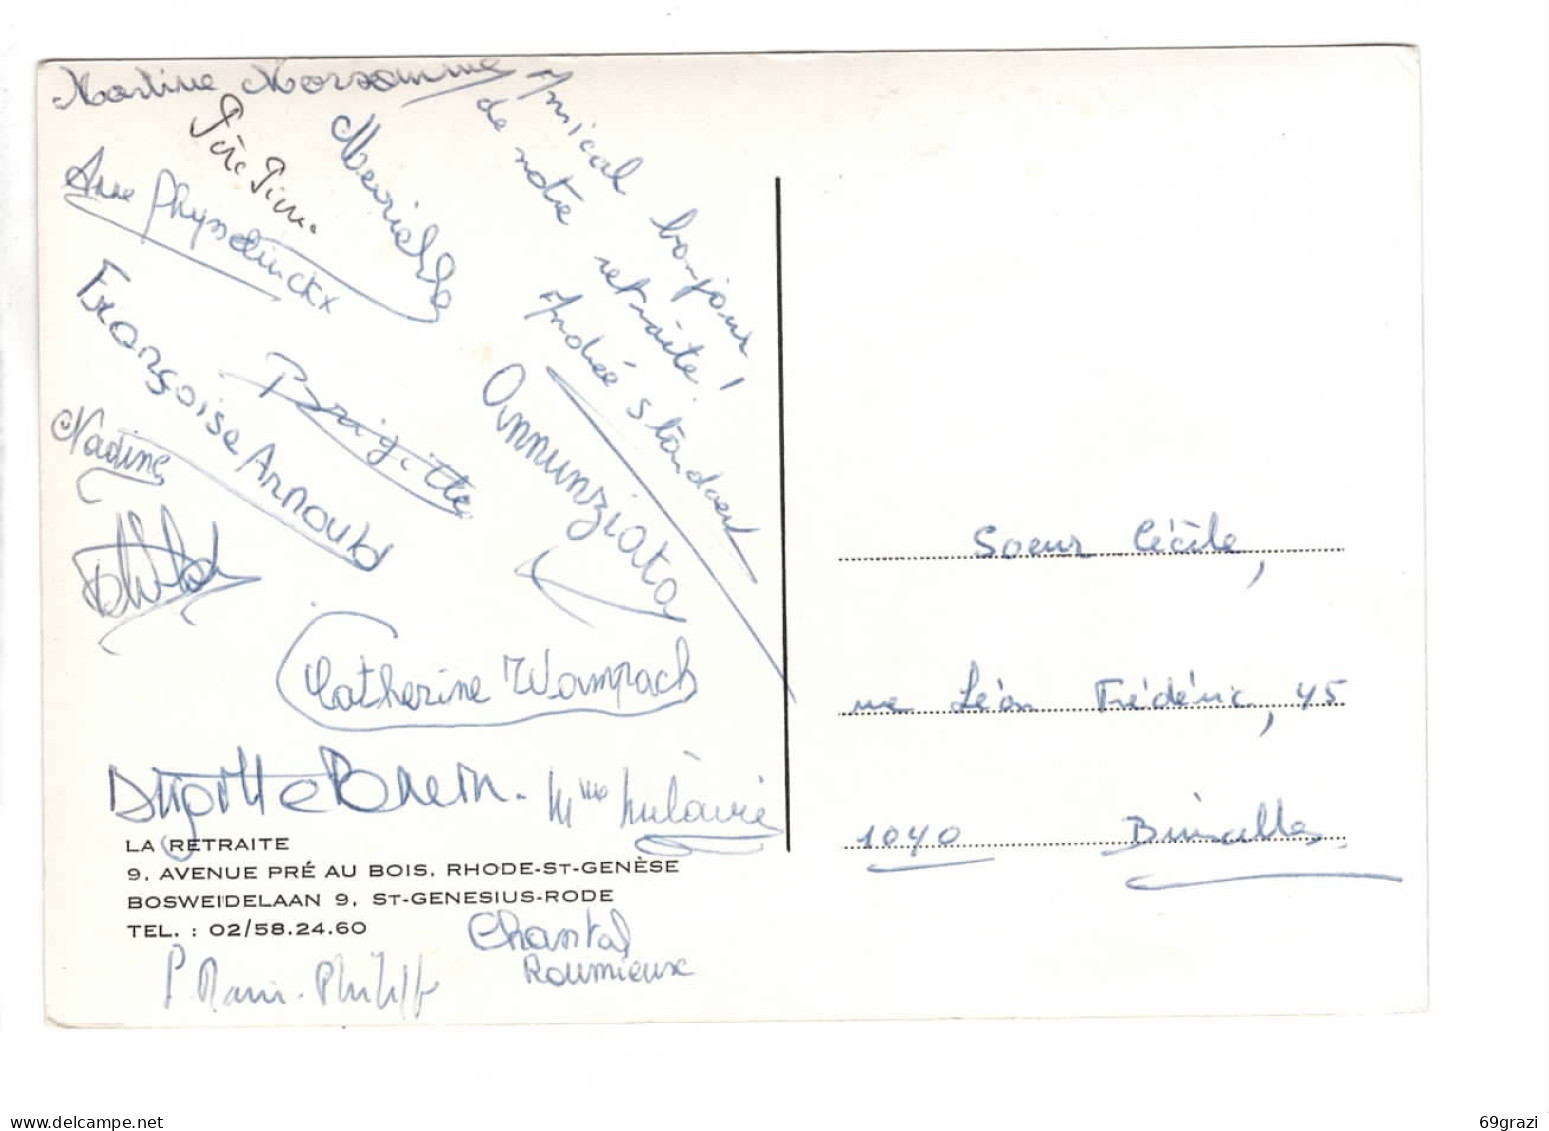 Martine Marsomme
Père Pierre
Amical bonjour
de notre retraite !
Andrée Standaert
Françoise Arnould
Brigitte
Annunziata
Nadine
Catherine Wampach
Brigitte
Mme
LA RETRAITE
9, AVENUE PRÉ AU BOIS, RHODE-ST-GENÈSE
BOSWEIDELAAN 9, ST-GENESIUS-RODE
TEL. : 02/58.24.60
Chantal
Roumieux
P. Marie-Philippe
Soeur Cécile,
rue Léon Frédéric, 45
1040 Bruxelles
www.delcampe.net
69grazi